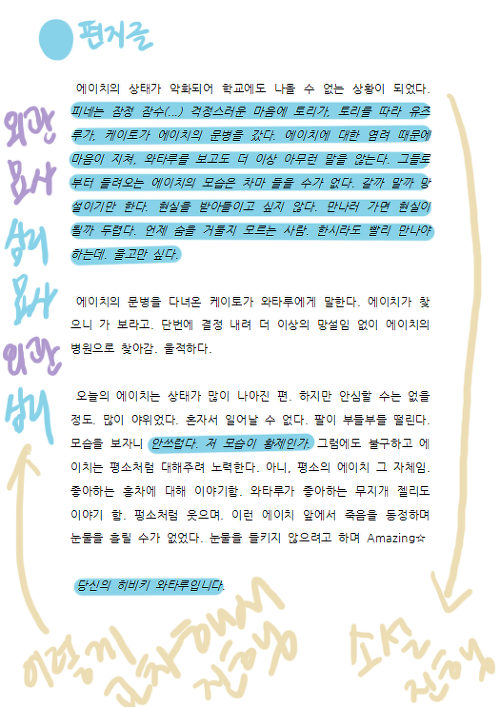 편지글
에이치의 상태가 악화되어 학교에도 나올 수 없는 상황이 되었다.
피네는 잠정 잠수(...) 걱정스러운 마음에 토리가, 토리를 따라 유즈
루가, 케이토가 에이치의 문병을 갔다. 에이치에 대한 염려 때문에
마음이 지쳐, 와타루를 보고도 더 이상 아무런 말을 않는다. 그들로
부터 들려오는 에이치의 모습은 차마 들을 수가 없다. 갈까 말까 망
설이기만 한다. 현실을 받아들이고 싶지 않다. 만나러 가면 현실이
될까 두렵다. 언제 숨을 거둘지 모르는 사람. 한시라도 빨리 만나야
하는데. 울고만 싶다.
에이치의 문병을 다녀온 케이토가 와타루에게 말한다. 에이치가 찾
으니 가 보라고. 단번에 결정 내려 더 이상의 망설임 없이 에이치의
병원으로 찾아감. 울적하다.
오늘의 에이치는 상태가 많이 나아진 편. 하지만 안심할 수는 없을
정도. 많이 야위었다. 혼자서 일어날 수 없다. 팔이 부들부들 떨린다.
모습을 보자니 안쓰럽다. 저 모습이 황제인가. 그럼에도 불구하고 에
이치는 평소처럼 대해주려 노력한다. 아니, 평소의 에이치 그 자체임.
좋아하는 홍차에 대해 이야기함. 와타루가 좋아하는 무지개 젤리도
이야기 함. 평소처럼 웃으며. 이런 에이치 앞에서 죽음을 동정하며
눈물을 흘릴 수가 없었다. 눈물을 들키지 않으려고 하며 Amazing☆
당신의 히비키 와타루입니다.
외관
묘사
심리
묘사
외관
심리
이렇게
진행
소설
진행